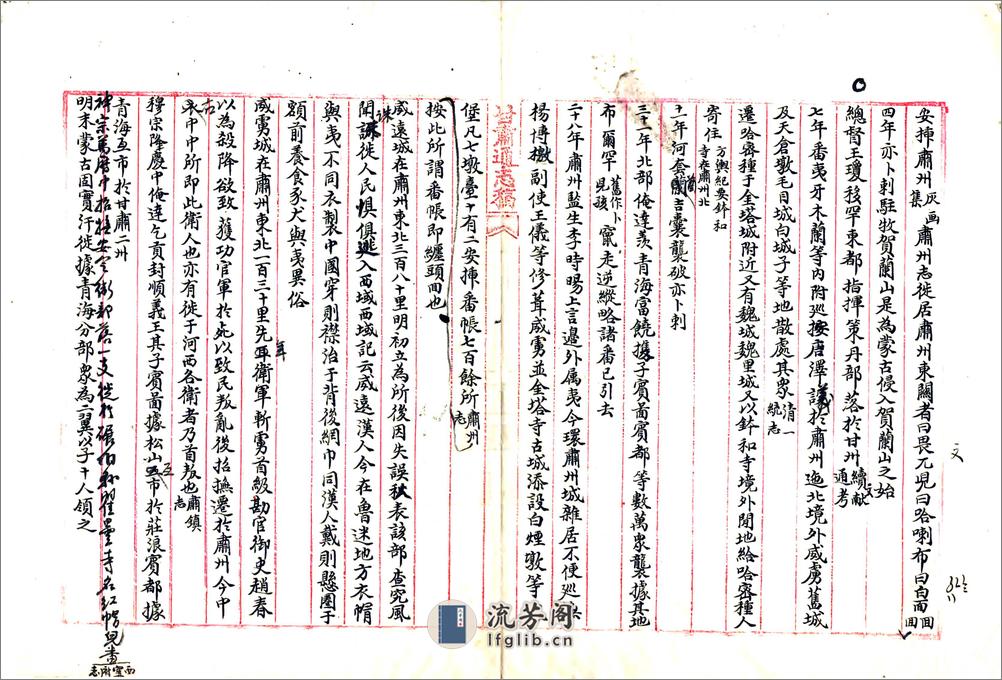 安挿肅州灰画集肅州志徙居肅州東關者曰畏兀兒曰哈喇布曰白面回回
四年亦卜剌駐牧賀蘭山是為蒙古侵入賀蘭山之始
總督王瓊移罕東都指揮策丹部落於甘州續文獻通考
七年番夷牙木蘭等內附巡按唐澤議於肅州迤北境外威虜舊城
及天倉墩毛目城白城子等地散處其衆清一統志
遷哈密種于金塔城附近又有魏城魏里城又以鉢和寺境外閒地給哈密種人
寄住方輿紀要鉢和寺在肅州北
十一年河套酋吉囊襲破亦卜剌
三十一年北部俺達羨青海富饒携子賓啚賓都等數萬衆襲據其地
布爾罕舊作卜兒孩竄走逆縱略諸番已引去
二十八年肅州監生李時暘上言邊外属夷今環肅州城雜居不便巡撫
楊博檄副使王儀等修葺威虜並金塔寺古城添設白煙墩等
甘肅通志稿
堡凡七墩臺十有二安挿番帳七百餘所肅州志
按此所謂番帳即纏頭回也
威遠城在肅州東北三百八十里明初立為所後因失誤秋表該部查究風
聞誅徙人民惧俱逃入西域西域記云威遠漢人今在魯迷地方衣帽
與夷不同衣製中國穿則襟治于背後網巾同漢人戴則懸圈于
額前養食豕犬與夷異俗
威虜城在肅州東北一百三十里先年衛軍斬虜首級勘官御史趙春
以為殺降欲致獲功官軍於死以致民叛亂後招撫遷於肅州今中
右所即此衛人也亦有徙于河西各衛者乃首叛也肅鎮志
穆宗隆慶中俺達乞貢封順義王其子賓啚據松山互市於莊浪賓都據
青海互市於甘肅二州
明末蒙古固實汗徙據青海分部衆為二翼以子十人領之
西寧府志
流芳阁
lfglib.cn